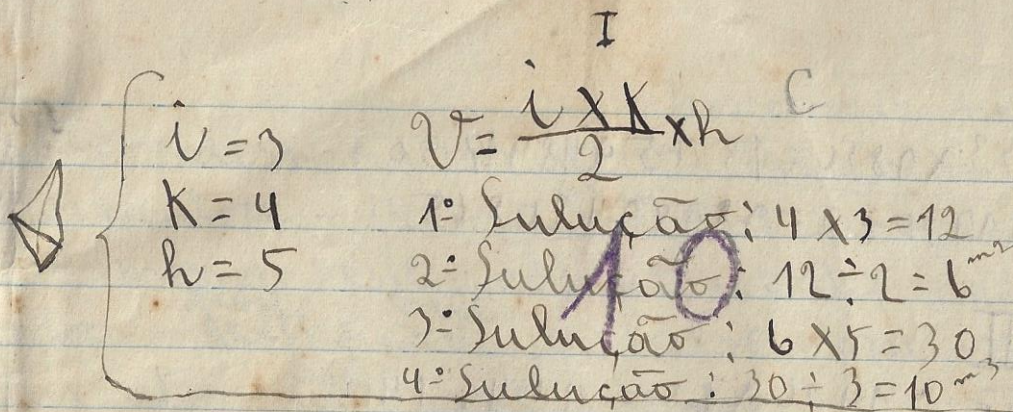 I
i = 3
K = 4
h = 5
V = i x K / 2 x h C
1º Sulução: 4 x 3 = 12
2º Sulução: 12 ÷ 2 = 6 m²
3º Sulução: 6 x 5 = 30
4º Sulução: 30 ÷ 3 = 10 m³
10